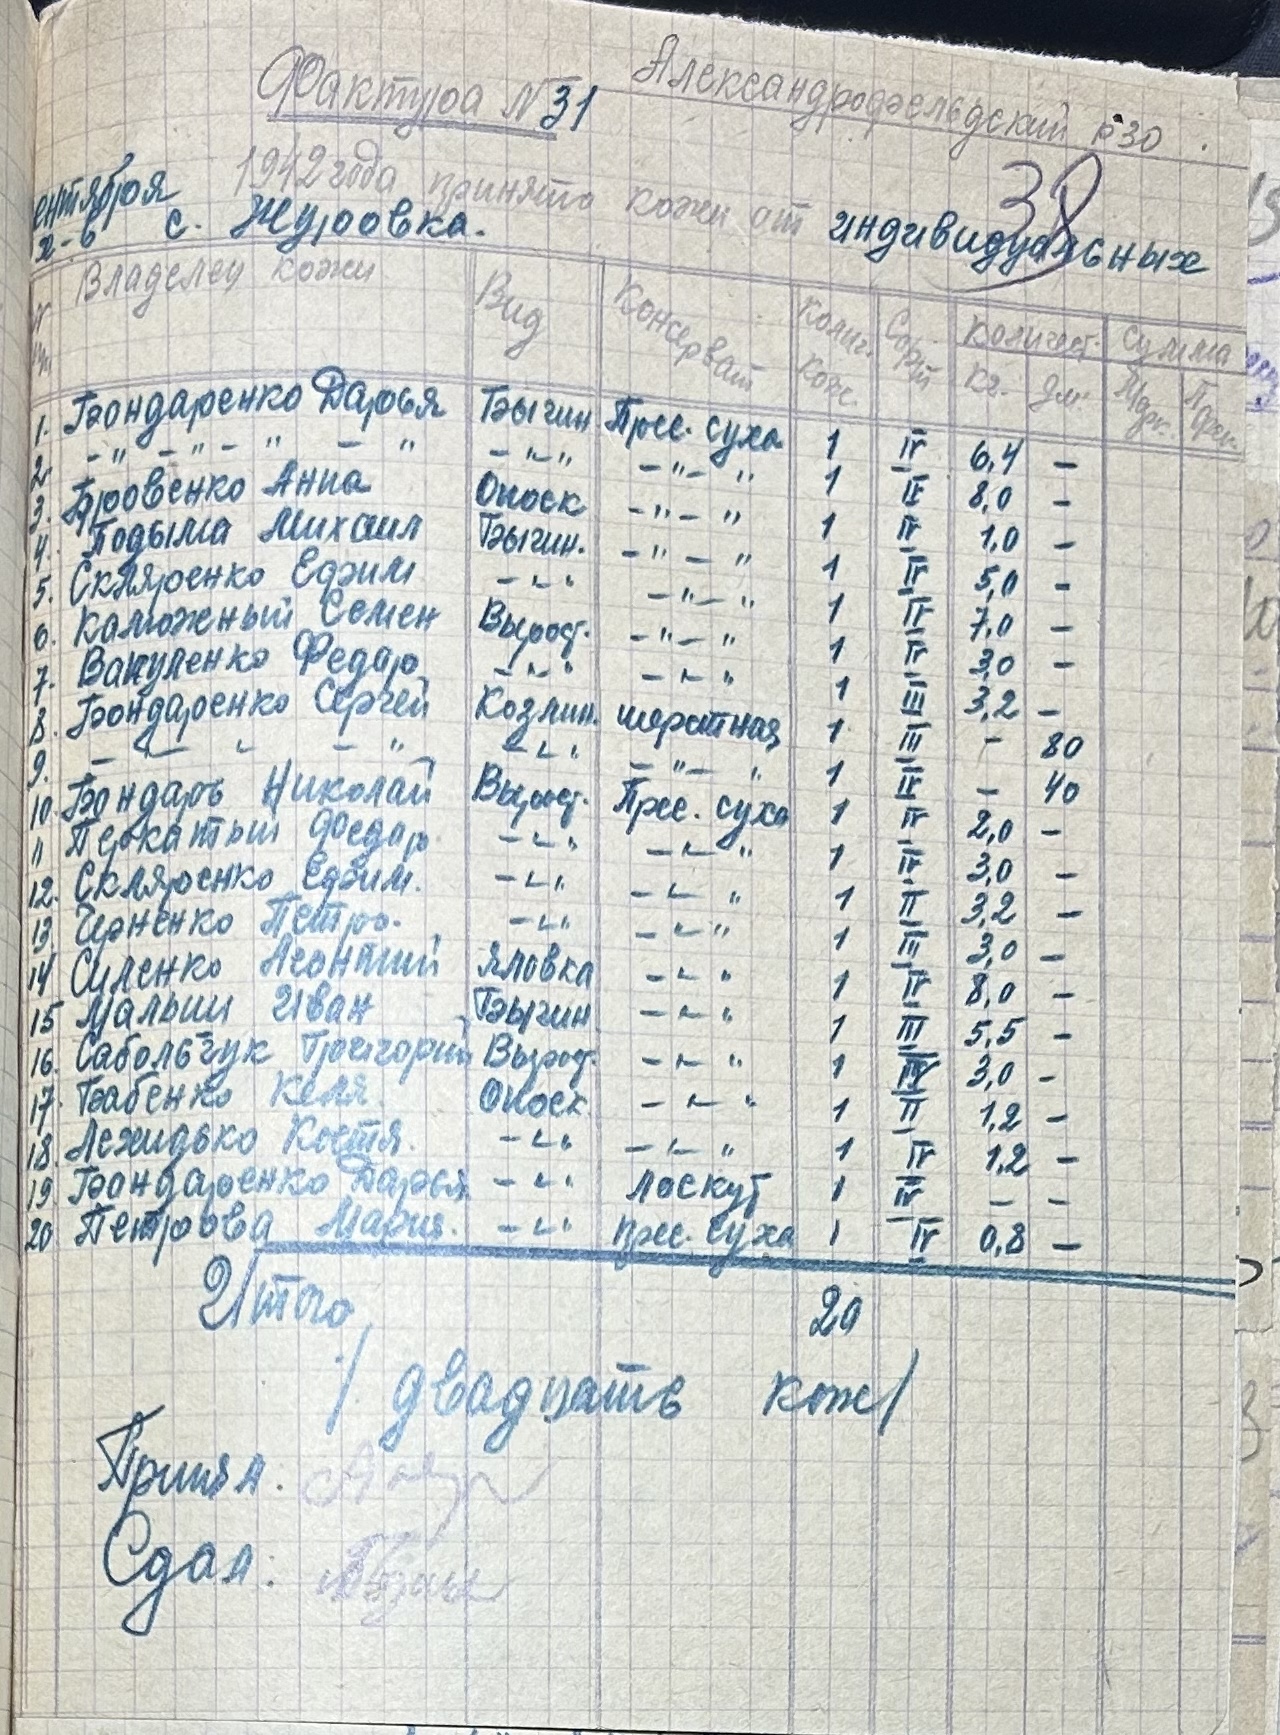 Фактура N 31 Александрофельдский р-30
38
ентября 1942 года принято кожи от индивидуальных
х-в с. Журовка.
Владелец кожи Вид Консерват Колич. кож. Сорт Количест. Сумма
кг. дм. Марк. Пфен.
1. Бондаренко Дарья Бычин Прес. суха 1 IV 6,4 –
2. –"–"–"–" –"–" –"–" 1 IV 8,0 –
3. Бровенко Анна Опоек –"–" 1 IV 1,0 –
4. Подыма Михаил Бычин. –"–" 1 IV 5,0 –
5. Скляренко Ефим –"– –"–" 1 IV 7,0 –
6. Калюжный Семен Вырост. –"–" 1 IV 3,0 –
7. Вакуленко Федор –"– –"–" 1 III 3,2 –
8. Бондаренко Сергей Козлин. шерстная 1 III – 80
9. –"–"–" –"– –"–" 1 IV – 40
10. Бондарь Николай Вырост. Прес. суха 1 IV 2,0 –
11 Федор –"– –"–" 1 IV 3,0 –
12. Скляренко Ефим. –"– –"–" 1 II 3,2 –
13. Петро. –"– –"–" 1 III 3,0 –
14 Суленко Леонтий яловка –"–" 1 IV 8,0 –
15 Малыш Иван Бычин –"–" 1 III 5,5 –
16. Сабольчук Григорий Вырост. –"–" 1 IV 3,0 –
17. Бабенко Келя. Опоек –"–" 1 II 1,2 –
18. Лежидько Костя. –"– –"–" 1 IV 1,2 –
19 Бондаренко Дарья –"– Лоскут 1 IV – –
20 Петрова Мария. –"– прес. суха 1 IV 0,8 –
Итого 20
/ двадцать кож/
Принял:
Сдал: